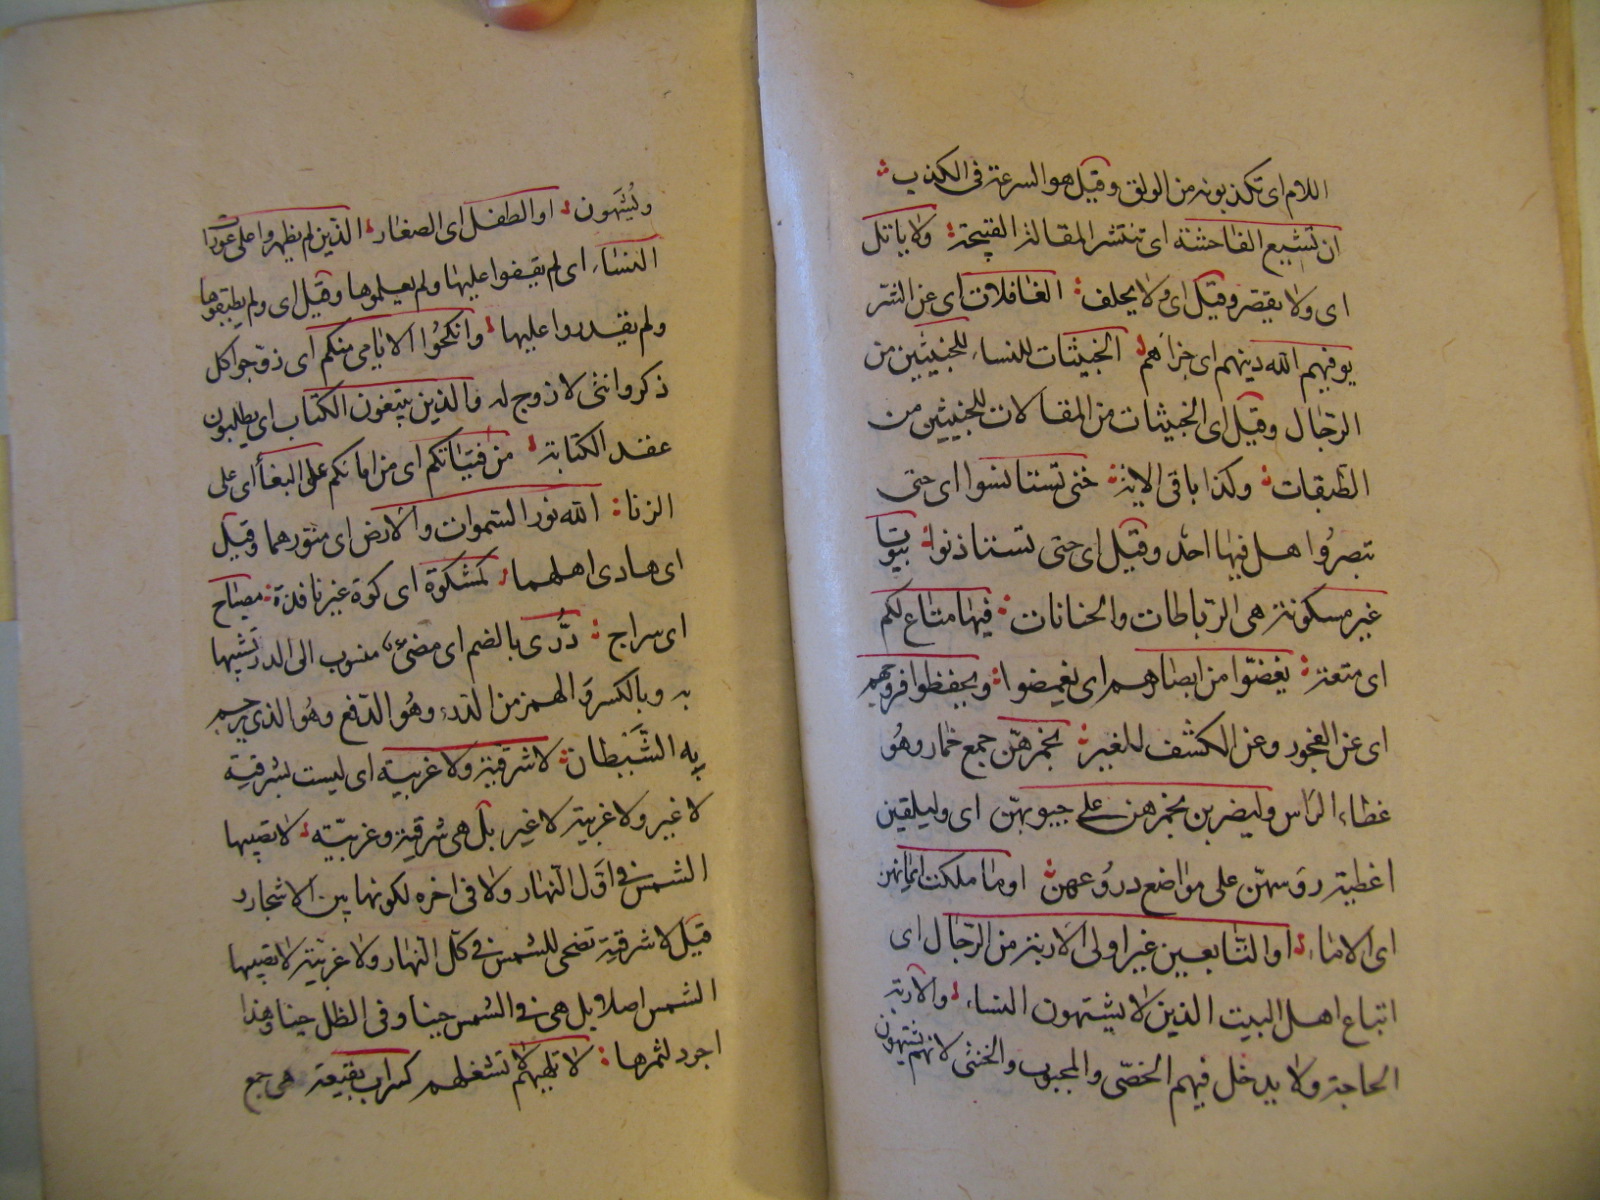 اللام اى تكذبونه من الولق وقيل هو السرعة فى الكذب
ان تشيع الفاحشة اى تنتشر المقالة القبيحة ولا ياتل
اى ولا يقصر وقيل اى ولا يحلف الغافلات اى عن الشر
يوفيهم الله دينهم اى جزاهم الخبيثات للنساء للخبيثين من
الرجال وقيل اى الخبيثات من المقالات للخبيثين من
الطبقات وكذا باقى الاية حتى تستانسوا اى حتى
تبصروا هل فيها احد وقيل اى حتى تستاذنوا بيوتا
غير مسكونة هى الرباطات والخانات فيها متاع لكم
اى متعة يغضوا من ابصارهم اى يغمضوا ويحفظوا فروجهم
اى عن الفجور وعن الكشف للغير بخمرهن جمع خمار وهو
غطاء الراس وليضربن بخمرهن على جيوبهن اى وليلقين
اغطية روسهن على مواضع دروعهن او ما ملكت ايمانهن
اى الاماء او التابعين غير اولى الاربة من الرجال اى
اتباع اهل البيت الذين لا يشتهون النساء والاربة
الحاجة ولا يدخل فيهم الخصى والمجبوب والخنثى لانهم يشتهون
ويشتهون او الطفل اى الصغار الذين لم يظهروا على عورات
النساء اى لم يقفوا عليها ولم يعلموها وقيل اى ولم يطيقوها
ولم يقدروا عليها وانكحوا الايامى منكم اى زوجوا كل
ذكر وانثى لا زوج له والذين يبتغون الكتاب اى يطلبون
عقد الكتابة من فتياتكم اى من امائكم على البغا اى على
الزنا الله نور السموات والارض اى منورهما وقيل
اى هادى اهلهما كمشكوة اى كوة غير نافذة مصباح
اى سراج درى بالضم اى مضئ منسوب الى الدر تشبيها
به وبالكسر والهمز من الدرء وهو الدفع وهو الذى يرجم
به الشيطان لا شرقية ولا غربية اى ليست بشرقية
لا غير ولا غربية لا غير بل هى شرقية وغربية لا تصيبها
الشمس فى اول النهار ولا فى اخره لكونها بين الاشجار و
قيل لا شرقية تضحى للشمس فى كل النهار ولا غربية لا تصيبها
الشمس اصلا بل هى فى الشمس حينا وفى الظل حينا وهذا
اجود لثمرها لا تلهيهم لا تشغلهم كسراب بقيعة هى جمع